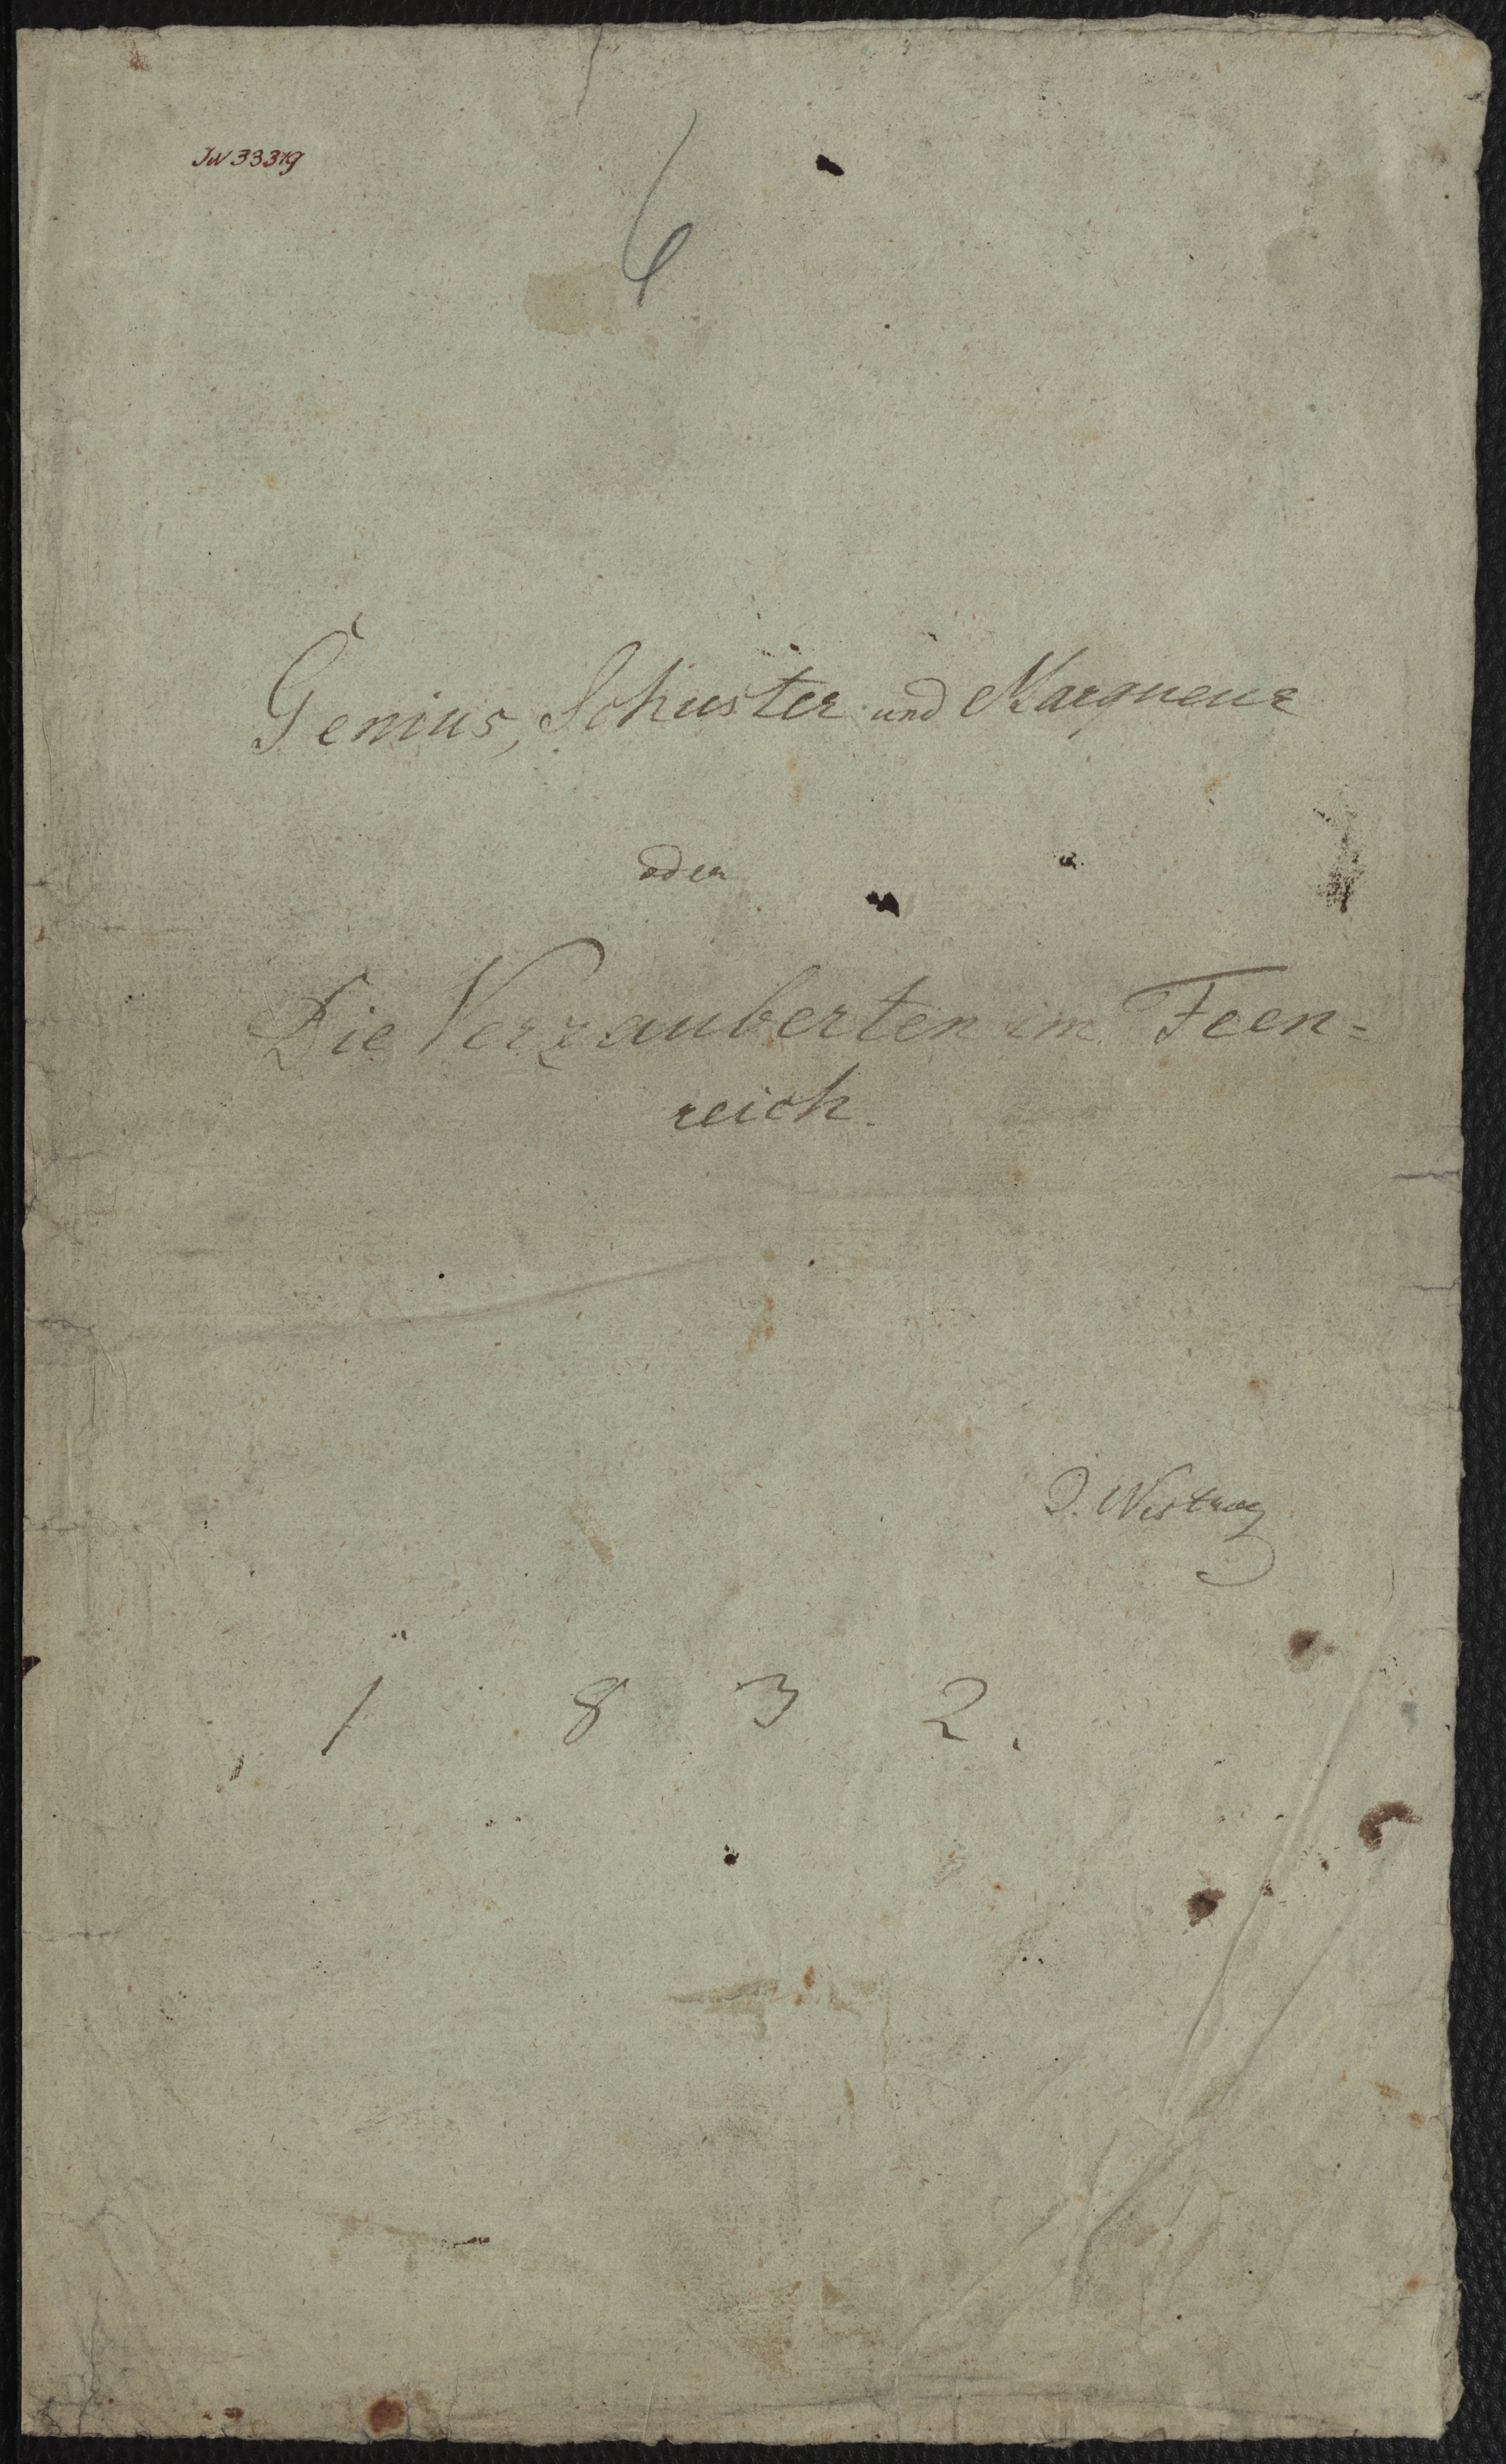 JN 33319
6
Genius, Schuster und Marqueur
oder
Die Verzauberten im Feen=
reich.
1 8 3 2.